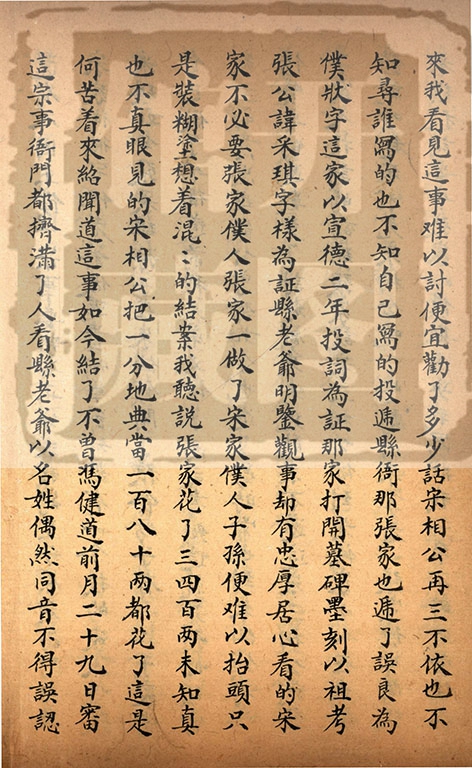 來我看見這事难以討便宜勸了多少話宋相公再三不依也不
知尋誰寫的也不知自己寫的投遞縣衙那張家也遞了誤良為
僕狀字這家以宣德二年投詞為証那家打開墓碑墨刻以祖考
張公諱采琪字樣為証縣老爺明鑒觀事却有忠厚居心看的宋
家不必要張家僕人張家一做了宋家僕人子孫便难以抬頭只
是裝糊塗想着混：的結案我聽説張家花了三四百兩未知真
也不真眼見的宋相公把一分地典當一百八十兩都花了這是
何苦看來紹聞道這事如今結了不曽馮健道前月二十九日審
這宗事衙門都擠滿了人看縣老爺以名姓偶然同音不得誤認